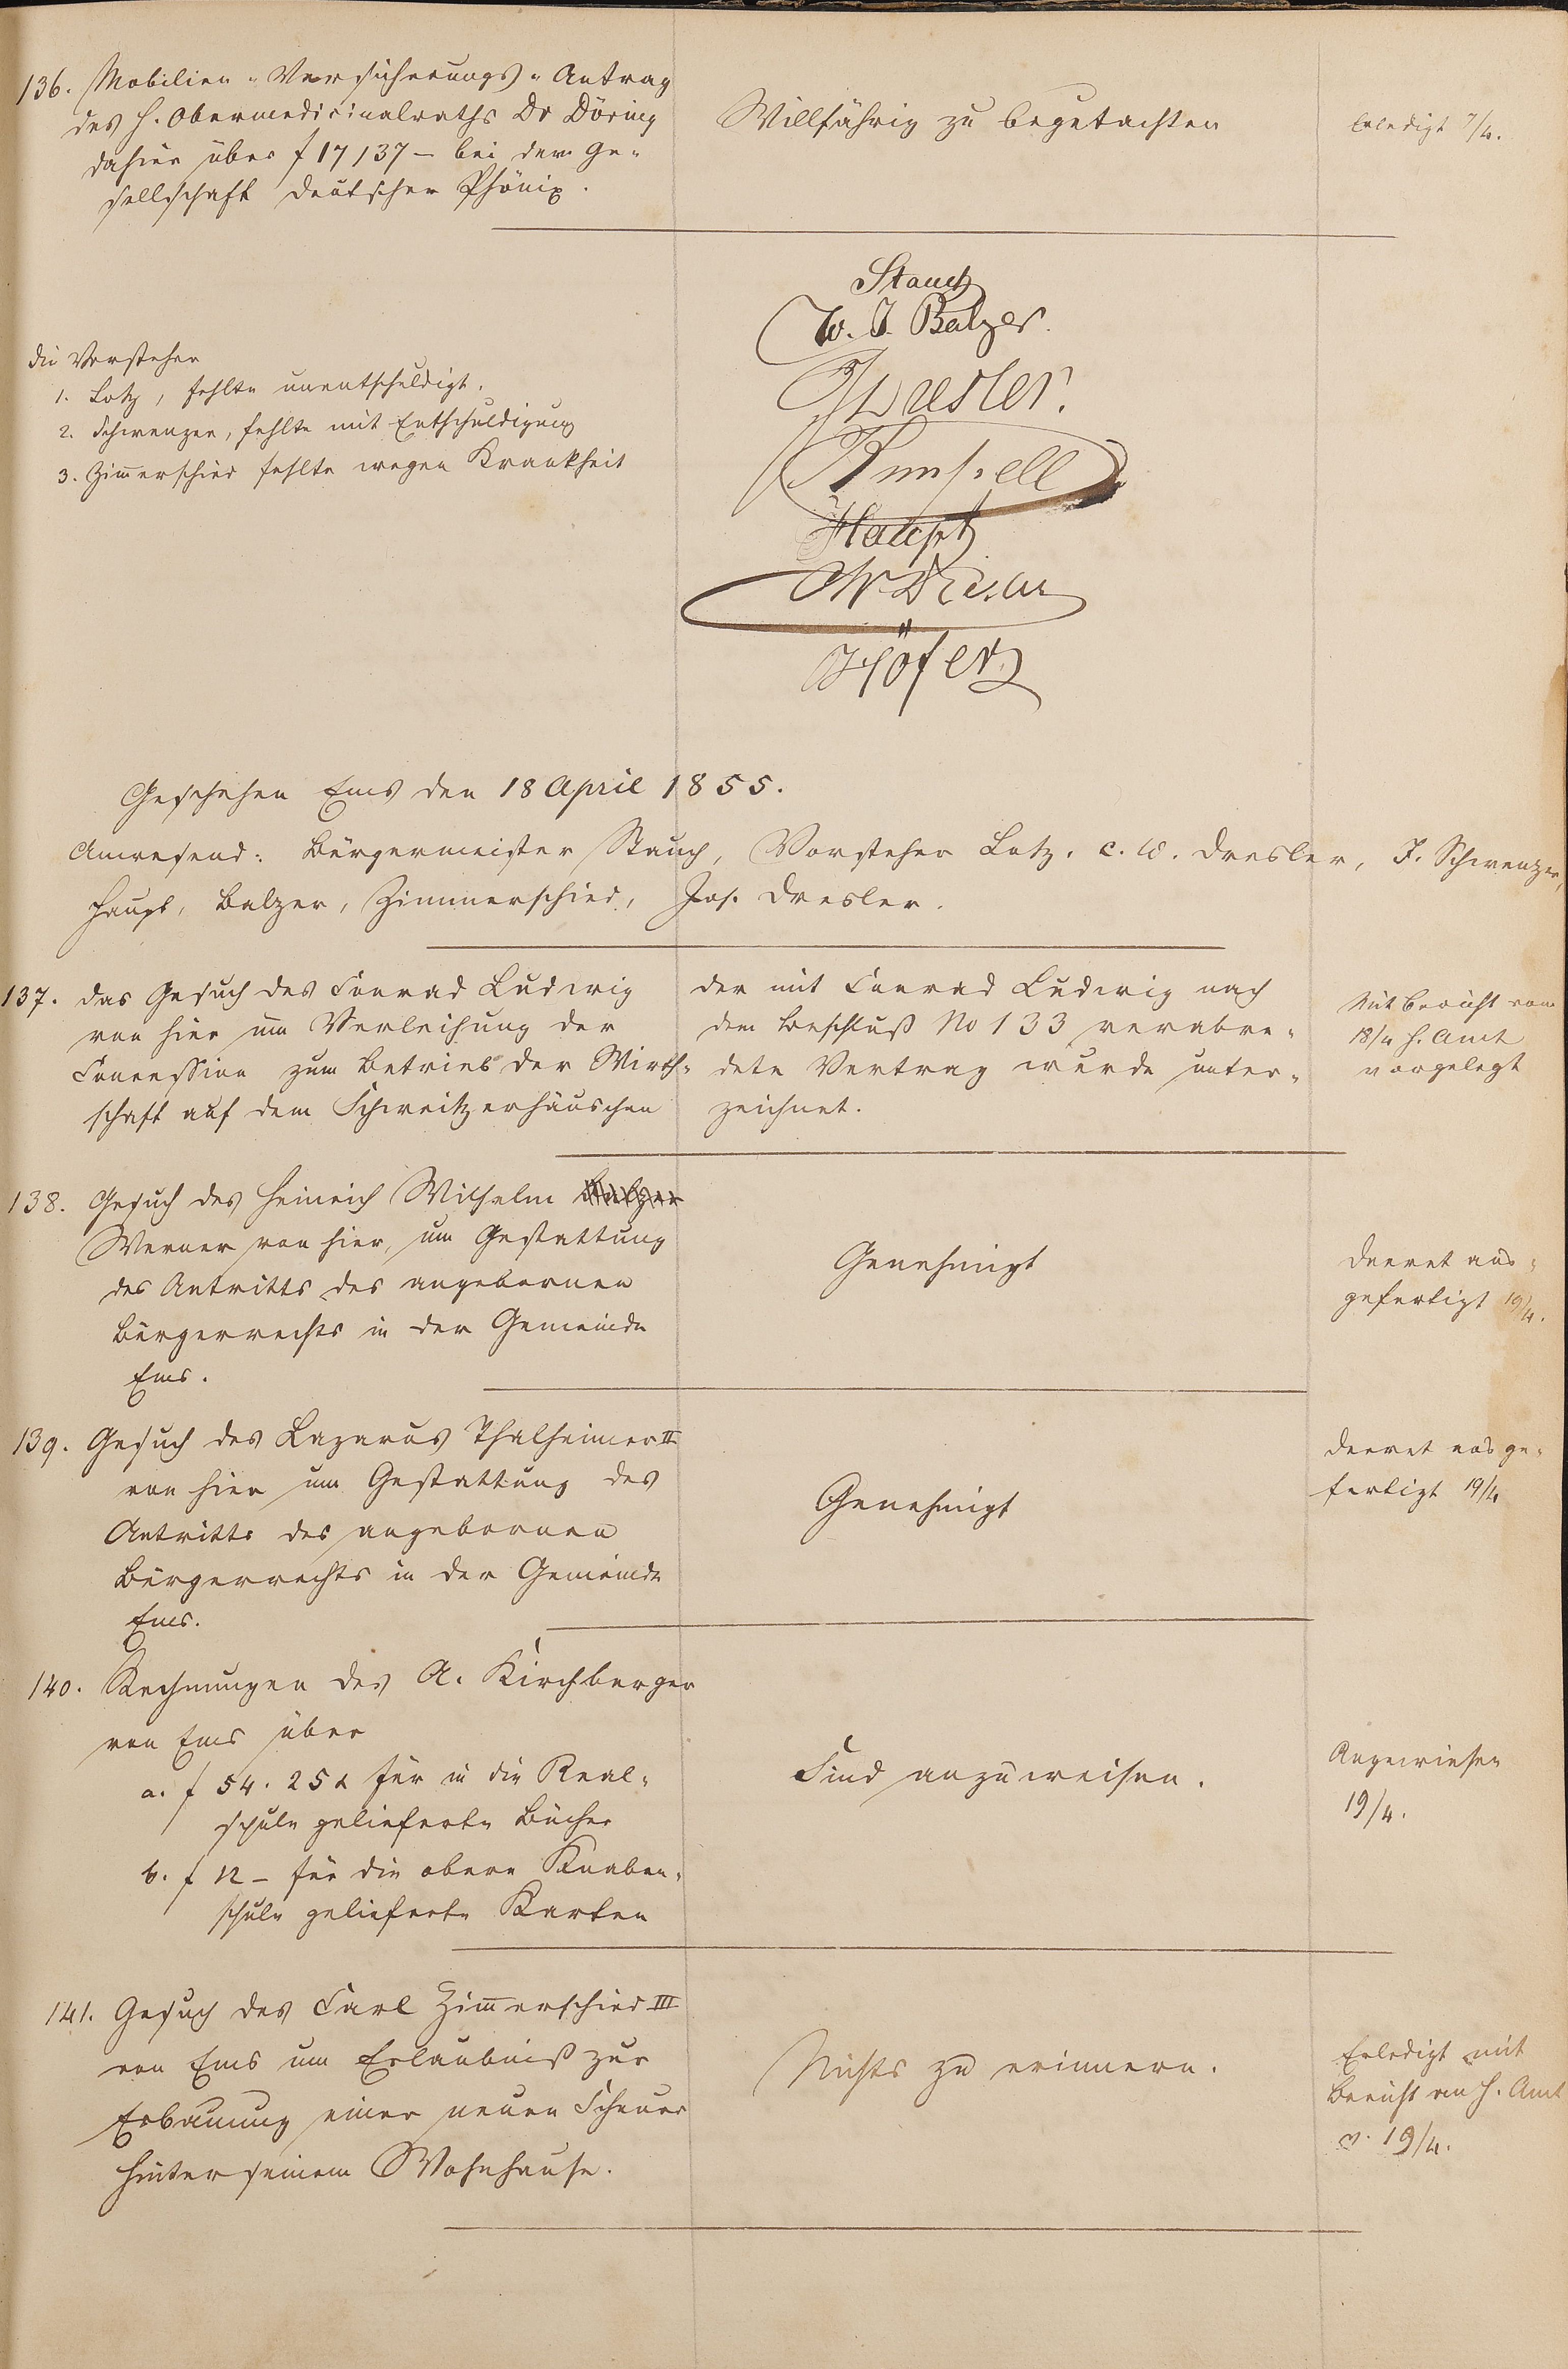 136. Mobilien-Versicherungs-Antrag
des H. Obermedicinalraths Dr Döring
dahier über f 17137 – bei der Ge-
sellschaft deutscher Phönix.
Willfährig zu begutachten
Erledigt 7/4.
Stauch
W. J. Balzer.
JDresler.
Haupt
Höfer
Die Vorsteher
1. Lotz, fehlte unentschuldigt.
2. Schwenzer, fehlte mit Entschuldigung
3. Zimerschied fehlte wegen Krankheit
Geschehen Ems den 18 April 1855.
Anwesend: Bürgermeister Stauch, Vorsteher Lotz. C. W. Dresler, J. Schwenzer,
Haupt, Balzer, Zimmerschied, Jos. Dresler.
137. Das Gesuch des Conrad Ludwig
von hier um Verleihung der
Concession zum Betrieb der Wirth-
schaft auf dem Schweitzerhäuschen
Der mit Conrad Ludwig nach
dem Beschluß No 133 verabre-
dete Vertrag wurde unter-
zeichnet.
Mit Bericht vom
18/4 H. Amt
vorgelegt
138. Gesuch des Heinrich Wilhelm Balzer
Werner von hier, um Gestattung
des Antritts des angebornen
Bürgerrechts in der Gemeinde
Ems.
Genehmigt
Decret aus-
gefertigt 19/4.
139. Gesuch des Lazarus Thalheimer II
von hier um Gestattung des
Antritts des angebornen
Bürgerrechts in der Gemeinde
Ems.
Genehmigt
Decret ausge-
fertigt 19/4
140. Rechnungen des A. Kirchberger
von Ems über
a. f 54. 25 x für in die Real-
schule gelieferte Bücher
b. f 12 – für die obere Knaben-
schule gelieferte Karten
Sind anzuweisen.
Angewiesen
19/4.
141. Gesuch des Carl Zimerschied III
von Ems um Erlaubniß zur
Erbauung einer neuen Scheuer
hinter seinem Wohnhause.
Nichts zu erinnern.
Erledigt mit
Bericht an H. Amt
v. 19/4.